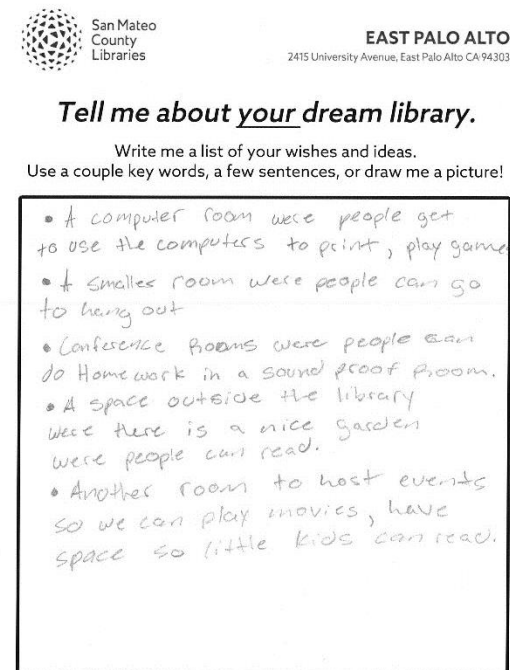 San Mateo
County
Libraries
EAST PALO ALTO
2415 University Avenue, East Palo Alto CA 94303
Tell me about your dream library.
Write me a list of your wishes and ideas.
Use a couple key words, a few sentences, or draw me a picture!
• A computer room were people get
to use the computers to print, play game
• A smaller room were people can go
to hang out
• Conference Rooms were people can
do Homework in a sound proof Room.
• A space outside the library
were there is a nice garden
were people can read.
• Another room to host events
so we can play movies, have
space so little kids can read.